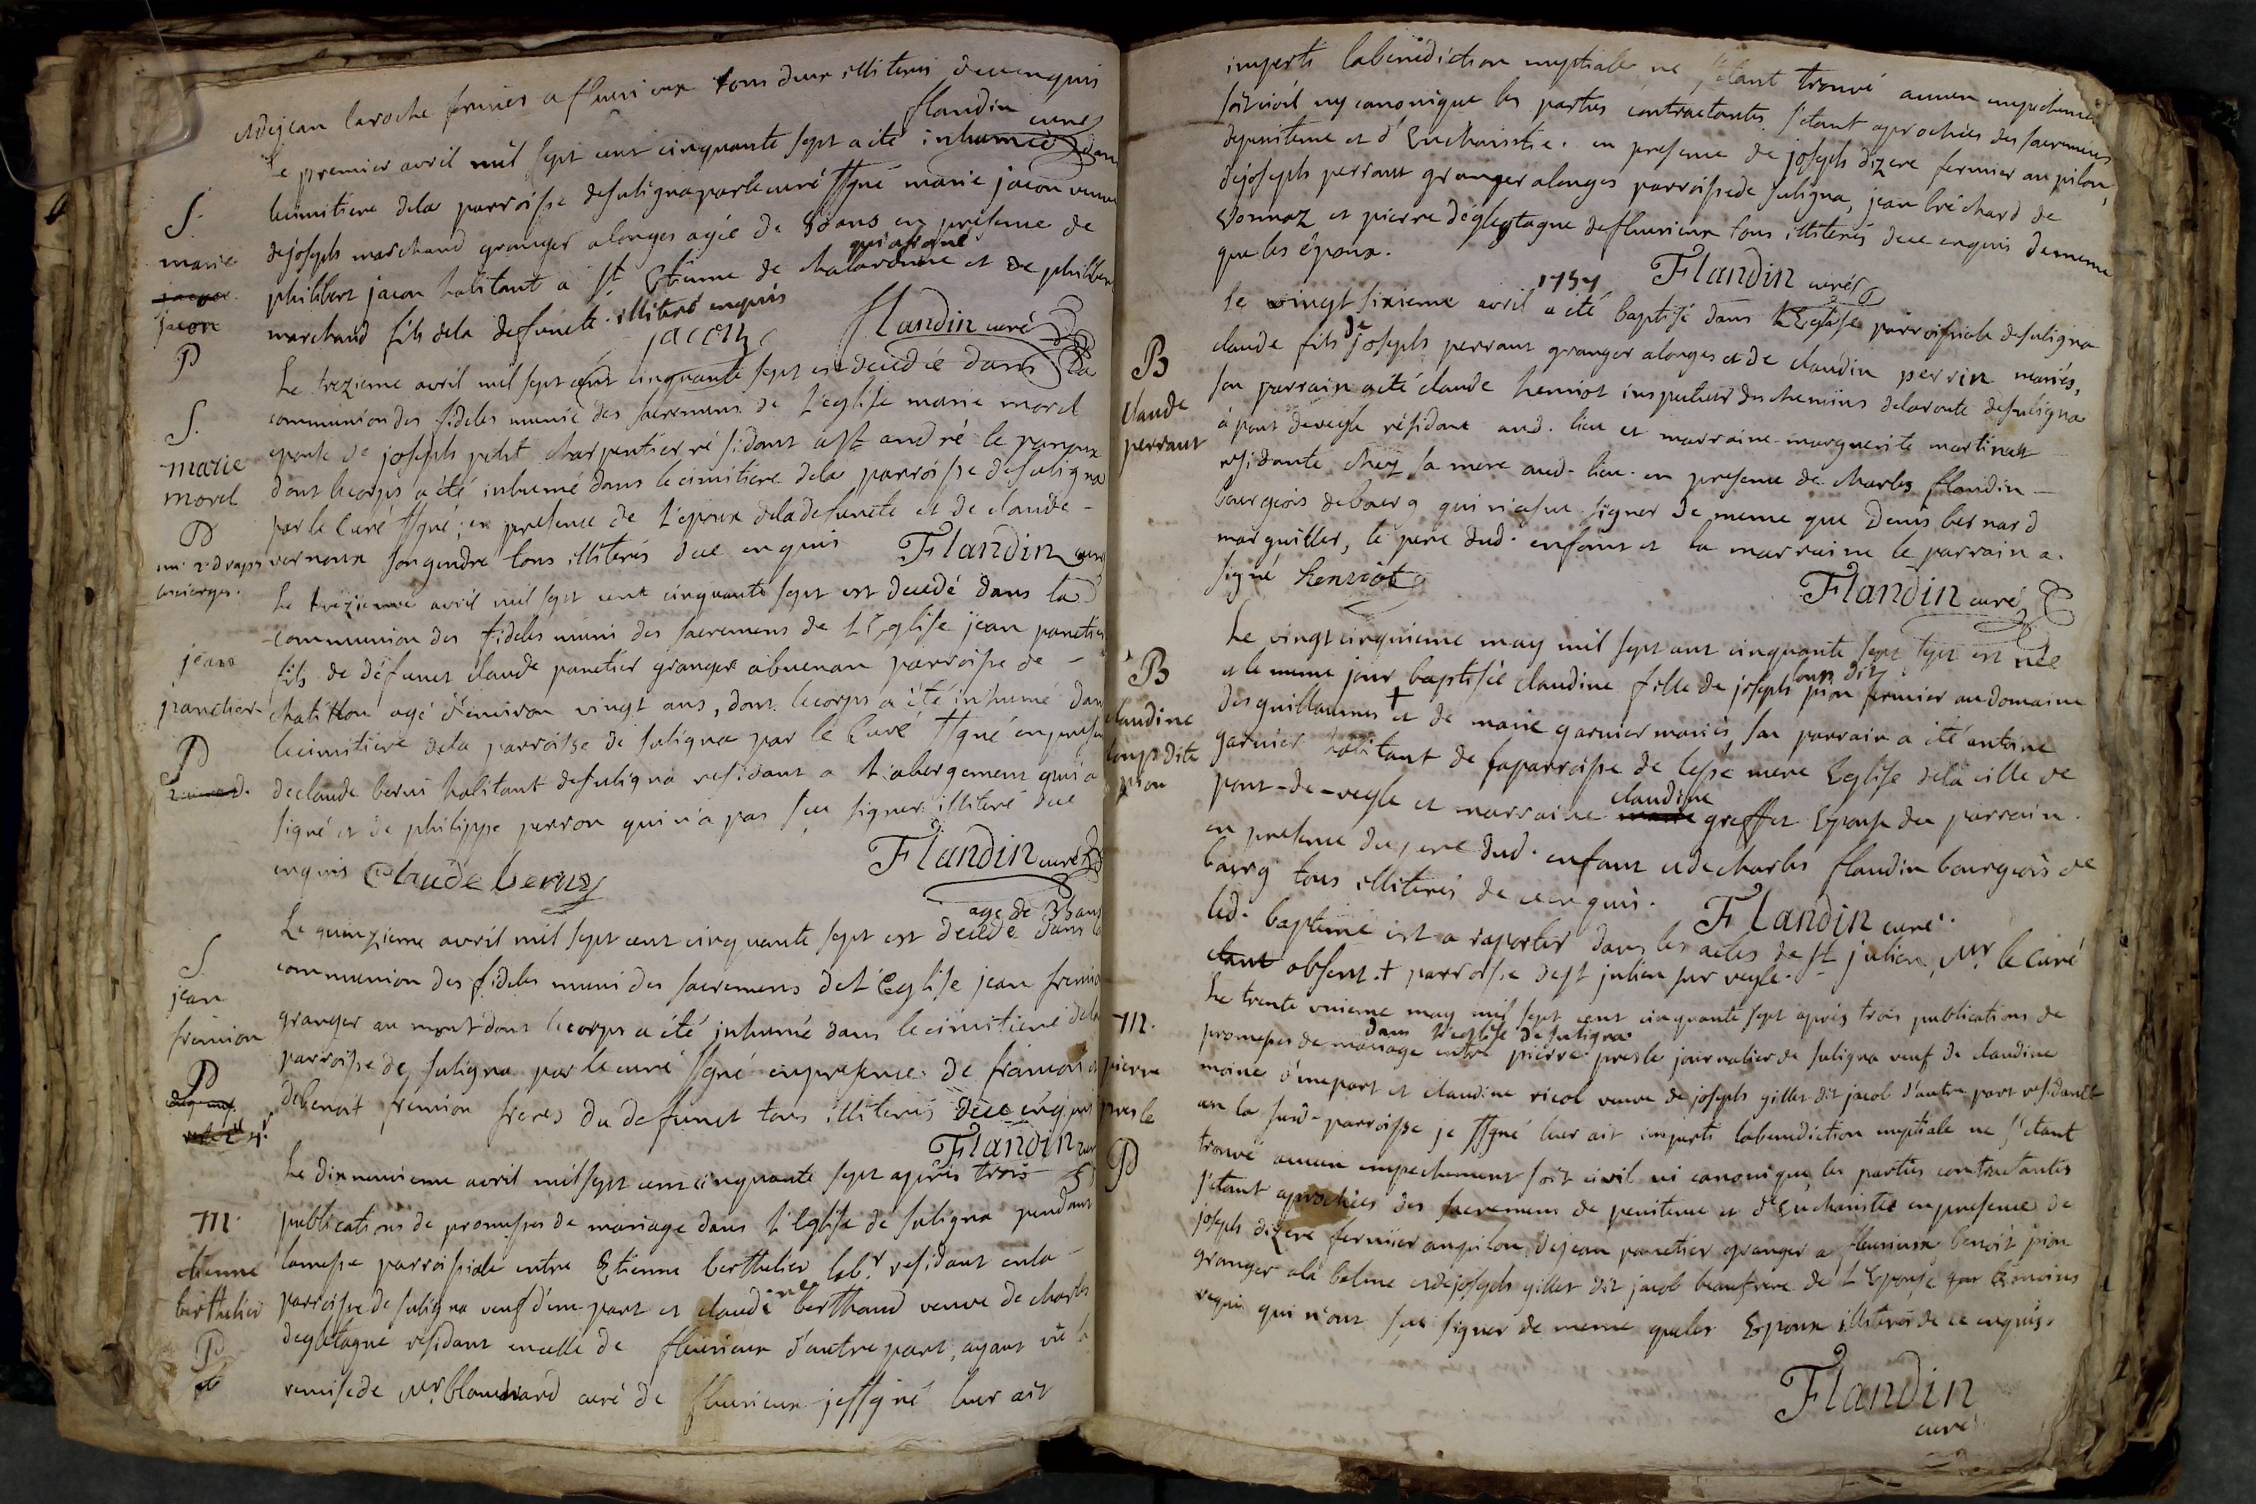 et de jean laroche fermier a fleurieux tous deux illiterés de ce enquis
flandin curé
Le premier avril mil sept cent cinquante sept a été inhumée dans
S.
lecimitiere dela parroisse desuligna par le curé ssgné marie jacon veuve
marie
dejoseph marchand granger alonges agée de ans en presence de
jacon
philibert jacon habitant a st Etienne de chalaronne qui a signé et de philibert
marchand fils dela defuncte illiteré enquis
P
jacon
flandin curé
Le trezieme avril mil sept cent cinquante sept est decedée dans la
S.
communion des fideles munie des sacremens de l'eglise marie morel
marie
epouse de joseph petit charpentier résidant a st andré le panoux
morel
dont lecorps a été inhumé dans lecimitiere dela parroisse desuligna
par le curé ssgné; en presence de l'epoux deladefuncte et de claude
P
vernoux songendre tous illiterés de ce enquis
Flandin curé
Le trezieme avril mil sept cent cinquante sept est decedé dans la
communion des fideles muni des sacremens de l'Eglise jean panetier
jean
fils de défunct claude panetier granger abuenan parroisse de
panetier
chatillon agé d'environ vingt ans, dont lecorps a été inhumé dans
lecimitiere dela parroisse de suligna par le curé ssgné en presence
P
declaude berni habitant desuligna residant a l'abergement qui a
signé et de philippe perron qui n'a pas sçu signer illiteré de ce
enquis Claude berny
Flandin curé
agé de 35 ans
Le quinzieme avril mil sept cent cinquante sept est decedé dans la
S
communion des fideles muni des sacremens de l'Eglise jean fremion
jean
granger au mont dont lecorps a été inhumé dans lecimitiere dela
fremion
parroisse de suligna par le curé ssgné enpresence de francois et
P
debenoit fremion freres du defunct tous illiterés de ce enquis
Flandin curé
Le dixneuvieme avril mil sept cent cinquante sept après trois
M.
publications de promesses de mariage dans l'Eglise de suligna pendant
etienne
lamesse parroissiale entre Etienne berthelier lab.r residant enla
berthelier
parroisse de suligna veuf d'une part et claudine berthaud veuve de charles
P
degletagne résidant encelle de fleurieux d'autre part, ayant vû la
remise de Mr. blanchard curé de fleurieux je ssgné leur ait
imparti labénédiction nuptiale ne s'étant trouvé aucun empechement
soit civil ny canonique les parties contractantes s'étant aprochées des sacremens
depenitence et d'Eucharistie. en presence de joseph dizere fermier au pilon,
dejoseph perraut granger alonges parroisse de suligna, jean bréchard de
vonnaz et pierre dégletagne defleurieux tous illiterés de ce enquis demême
que les époux.
1757
Flandin curé
Le vingt sixieme avril a été baptisé dans l'Eglise parroissiale desuligna
B
claude fils de joseph perraut granger alonges et de claudin perrin mariés,
claude
son parrain a été claude henriot inspecteur des chemins delaroute desuligna
perraut
à pont deveyle résidant aud. lieu et marraine marguerite martinet
residante chez sa mere aud. lieu en presence de charles flandin
bourgeois debourg qui n'a sçu signer de meme que Denis bernard
marguiller, le pere dud. enfant et la marraine le parrain a
signé henriot
Flandin curé
Le vingtcinquieme may mil sept cent cinquante sept est née
B
et le meme jour baptisée claudine fille de joseph loup dit pion fermier au domaine
claudine
des guillaumes + et de marie garnier mariés, son parrain a été antoine
loup dite
garnier habitant de laparroisse de lesse mere Eglise dela ville de
pion
pont-de-veyle et marraine claudine greffet Epouse du parrain.
en presence du pere dud. enfant et de charles flandin bourgeois de
bourg tous illiterés de ce enquis.
Flandin curé.
led. baptême est a raporter dans les actes de st julien, Mr. le curé
etant absent. + parroisse de st julien sur veyle.
Le trente unieme may mil sept cent cinquante sept après trois publications de
M.
promesses de mariage dans l'eglise de suligna entre pierre presle journalier de suligna veuf de claudine
pierre
moine d'une part et claudine ricol veuve de joseph gillet dit jacob d'autre part residante
presle
en la susd. parroisse je ssgné leur ait imparti labenediction nuptiale ne s'étant
P
trouvé aucun empechement soit civil ni canonique, les parties contractantes
s'étant aprochées des sacremens de penitence et d'Eucharistie en presence de
joseph dizere fermier au pilon, dejean panetier granger a fleurieux benoit pion
granger ala beline et dejoseph gillet dit jacob beaufrere de l'Epouse tous temoins
requis qui n'ont sçu signer de meme que les Epoux illiterés de ce enquis.
Flandin
curé